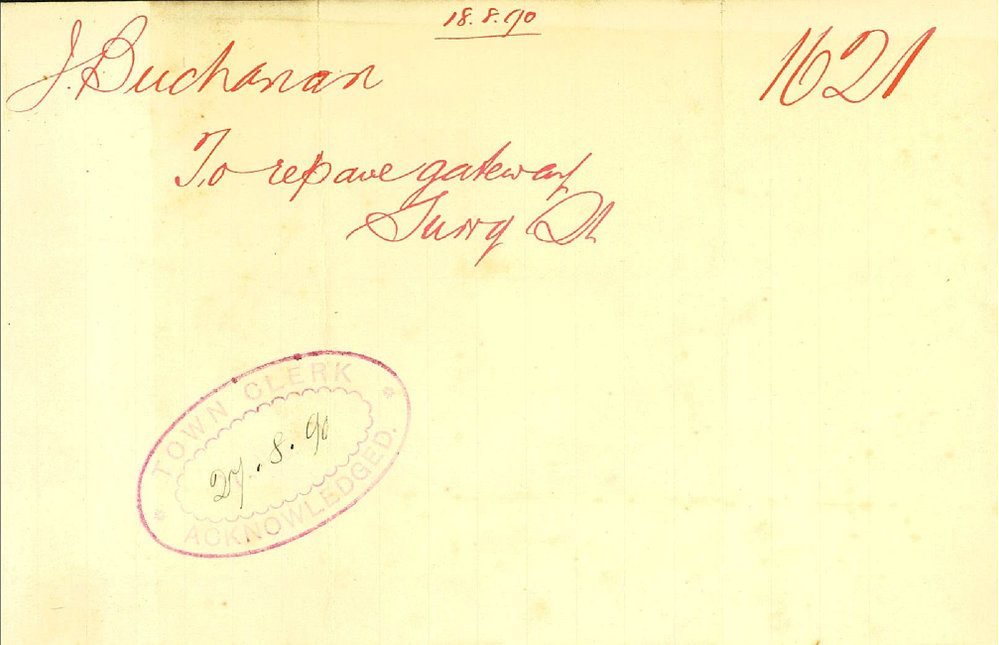 18.8.90
J. Buchanan 1621
To repave gateway
St
TOWN CLERK
27.8.90
ACKNOWLEDGED.